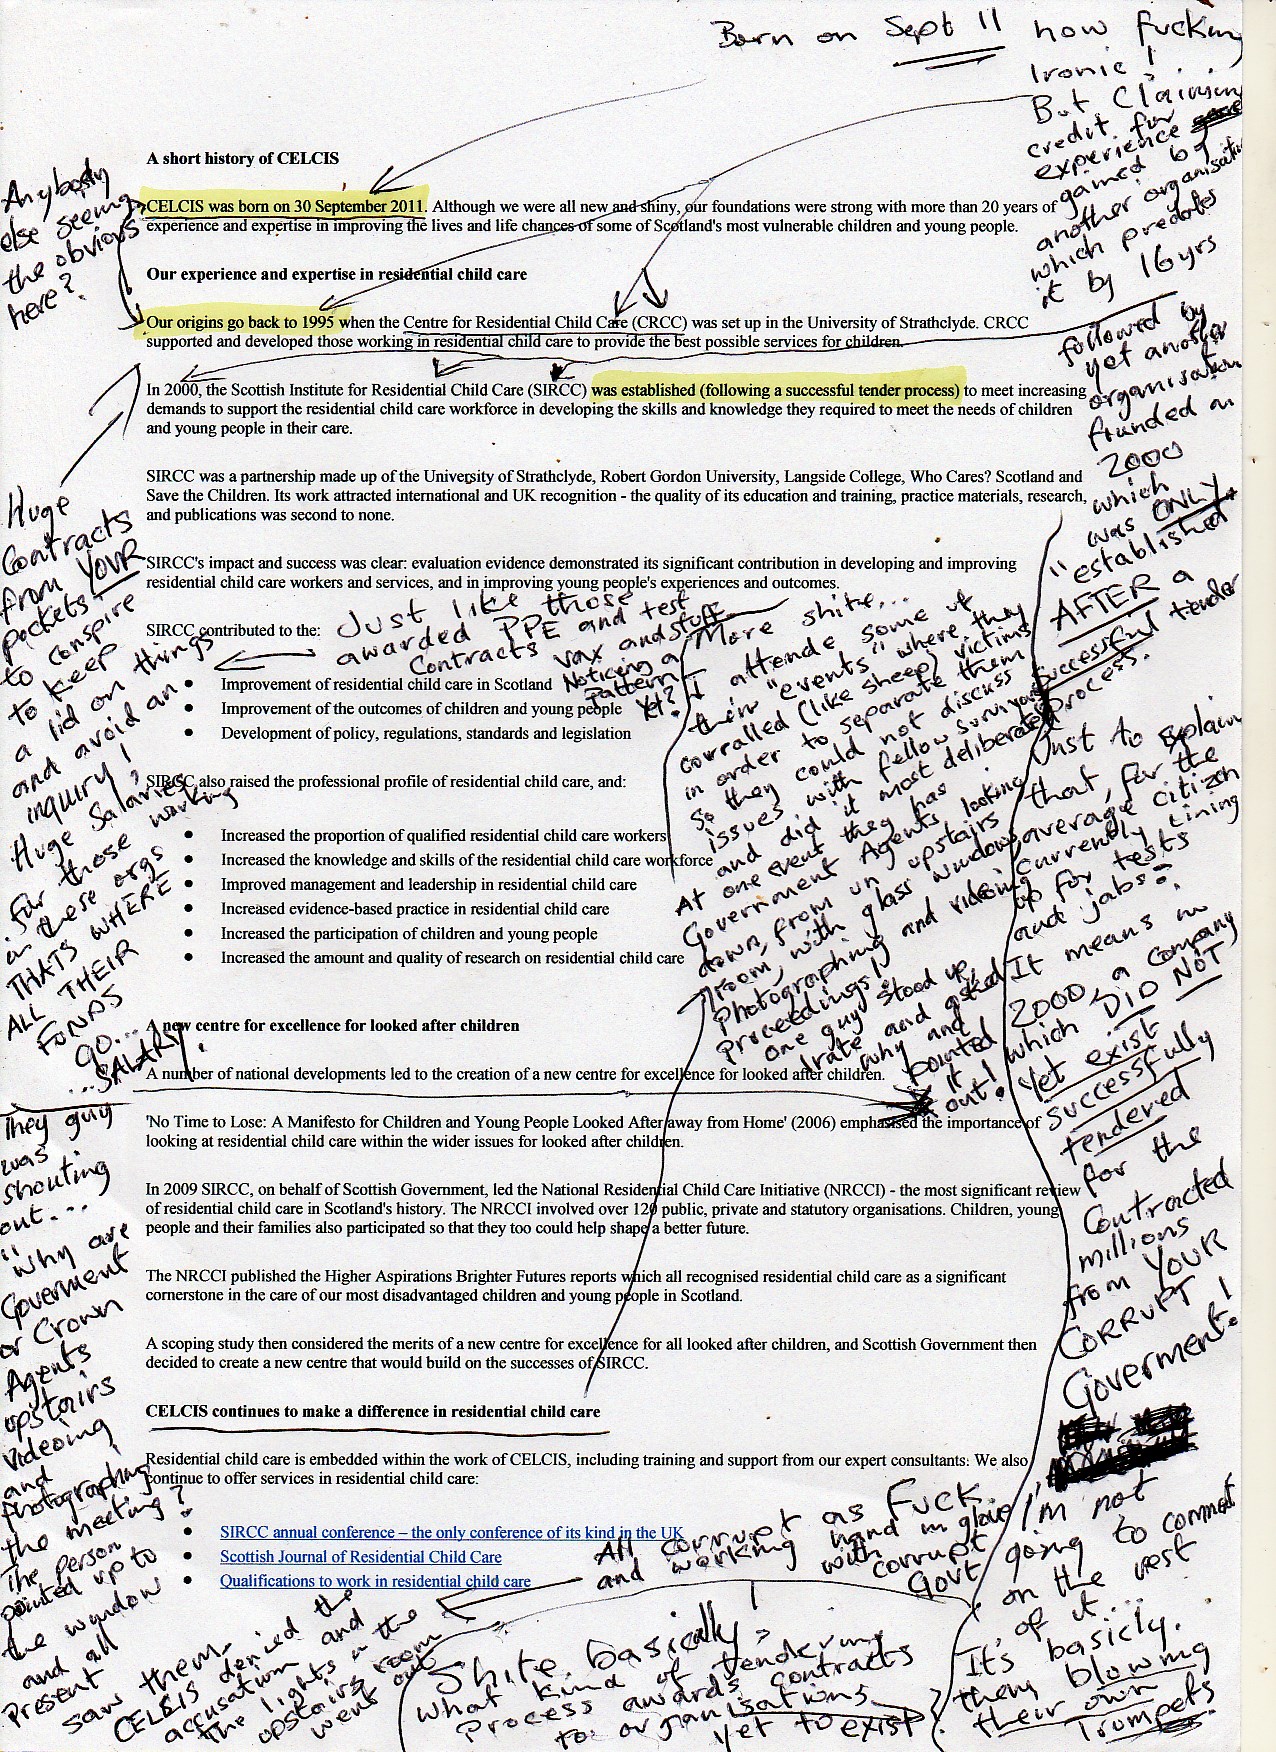 Born on Sept 11 how fucking
Ironic!
But Claiming
credit for
experience
gained by
another organisation
which predates
it by 16 yrs
followed by
yet another
organisation
founded in
2000
which
was ONLY
"established"
AFTER a
Successful tender
process.
Anybody
else seeing
the obvious
here?
A short history of CELCIS
CELCIS was born on 30 September 2011. Although we were all new and shiny, our foundations were strong with more than 20 years of
experience and expertise in improving the lives and life chances of some of Scotland's most vulnerable children and young people.
Our experience and expertise in residential child care
Our origins go back to 1995 when the Centre for Residential Child Care (CRCC) was set up in the University of Strathclyde. CRCC
supported and developed those working in residential child care to provide the best possible services for children.
In 2000, the Scottish Institute for Residential Child Care (SIRCC) was established (following a successful tender process) to meet increasing
demands to support the residential child care workforce in developing the skills and knowledge they required to meet the needs of children
and young people in their care.
SIRCC was a partnership made up of the University of Strathclyde, Robert Gordon University, Langside College, Who Cares? Scotland and
Save the Children. Its work attracted international and UK recognition - the quality of its education and training, practice materials, research,
and publications was second to none.
SIRCC's impact and success was clear: evaluation evidence demonstrated its significant contribution in developing and improving
residential child care workers and services, and in improving young people's experiences and outcomes.
SIRCC contributed to the:
Improvement of residential child care in Scotland
Improvement of the outcomes of children and young people
Development of policy, regulations, standards and legislation
SIRCC also raised the professional profile of residential child care, and:
Increased the proportion of qualified residential child care workers
Increased the knowledge and skills of the residential child care workforce
Improved management and leadership in residential child care
Increased evidence-based practice in residential child care
Increased the participation of children and young people
Increased the amount and quality of research on residential child care
A new centre for excellence for looked after children
A number of national developments led to the creation of a new centre for excellence for looked after children.
'No Time to Lose: A Manifesto for Children and Young People Looked After away from Home' (2006) emphasised the importance of
looking at residential child care within the wider issues for looked after children.
In 2009 SIRCC, on behalf of Scottish Government, led the National Residential Child Care Initiative (NRCCI) - the most significant review
of residential child care in Scotland's history. The NRCCI involved over 120 public, private and statutory organisations. Children, young
people and their families also participated so that they too could help shape a better future.
The NRCCI published the Higher Aspirations Brighter Futures reports which all recognised residential child care as a significant
cornerstone in the care of our most disadvantaged children and young people in Scotland.
A scoping study then considered the merits of a new centre for excellence for all looked after children, and Scottish Government then
decided to create a new centre that would build on the successes of SIRCC.
CELCIS continues to make a difference in residential child care
Residential child care is embedded within the work of CELCIS, including training and support from our expert consultants: We also
continue to offer services in residential child care:
SIRCC annual conference – the only conference of its kind in the UK
Scottish Journal of Residential Child Care
Qualifications to work in residential child care
Huge
Contracts
from YOUR
pockets
to conspire
to keep
a lid on things
and avoid an
inquiry!
Huge Salaries,
for those working
in these orgs
THATS WHERE
ALL THEIR
FUNDS
GO...
...SALARY!
Just like those
awarded PPE and test
Contracts vax and stuff
Noticing a
Pattern
Yet?
More shite...
I attende some of
their "events" where they
corralled (like sheep) victims
in order to separate them
so they could not discuss
issues with fellow survivors
and did it most deliberately
At one event they has
Government Agents looking
down, from un upstairs
room, with glass windows,
photographing and videoing
proceedings!
One guy stood up
irate and asked
why and
pointed
it
out!
Just to explain
that, for the
average citizen
currently lining
up for tests
and jabs:
It means in
2000, a company
which DID NOT
Yet exist
Successfully
tendered
for the
Contracted
millions
from YOUR
CORRUPT
Goverment!
They guy
was
shouting
out...
"Why are
Goverment
or Crown
Agents
upstairs
videoing
and
photographing
the meeting?
The person
pointed up to
the window
and all
present
saw them.
CELCIS denied the
accusation and
the lights in the
upstairs room
went out
All corrupt as Fuck
and working hand in glove
with corrupt
Govt
Shite, basically,
what kind of tendering
Process awards contracts
to organisations
yet to exist
I'm not
going to comment
on the rest
of it...
It's basicly.
them blowing
their own
Trumpets